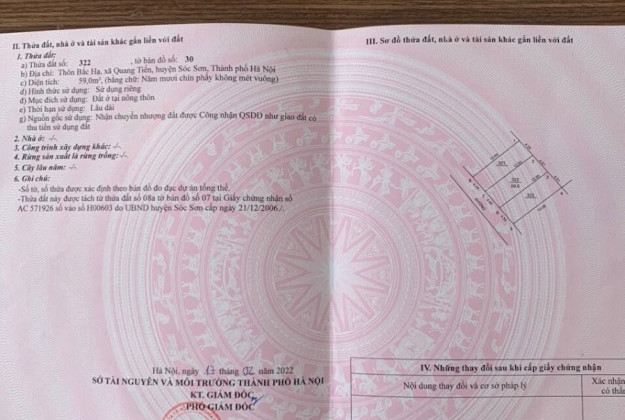 II. Thửa đất, nhà ở và tài sản khác gắn liền với đất
1. Thửa đất:
a) Thửa đất số: 322 , tờ bản đồ số: 30
b) Địa chỉ: Thôn Bắc Hạ, xã Quang Tiến, huyện Sóc Sơn, Thành phố Hà Nội
c) Diện tích: 59,0m², (bằng chữ: Năm mươi chín phẩy không mét vuông)
d) Hình thức sử dụng: Sử dụng riêng
đ) Mục đích sử dụng: Đất ở tại nông thôn
e) Thời hạn sử dụng: Lâu dài
g) Nguồn gốc sử dụng: Nhận chuyển nhượng đất được Công nhận QSDĐ như giao đất có
thu tiền sử dụng đất
2. Nhà ở: -/-
3. Công trình xây dựng khác: -/-
4. Rừng sản xuất là rừng trồng: -/-
5. Cây lâu năm: -/-
6. Ghi chú:
-Số tờ, số thửa được xác định theo bản đồ đo đạc dự án tổng thể.
-Thửa đất này được tách từ thửa đất số 08a tờ bản đồ số 07 tại Giấy chứng nhận số
AC 571926 số vào sổ H00603 do UBND huyện Sóc Sơn cấp ngày 21/12/2006./.
Hà Nội, ngày 17 tháng 02 năm 2022
SỞ TÀI NGUYÊN VÀ MÔI TRƯỜNG THÀNH PHỐ HÀ NỘI
KT. GIÁM ĐỐC
PHÓ GIÁM ĐỐC
III. Sơ đồ thửa đất, nhà ở và tài sản khác gắn liền với đất
322
IV. Những thay đổi sau khi cấp giấy chứng nhận
Nội dung thay đổi và cơ sở pháp lý
Xác nhận
có thẩm